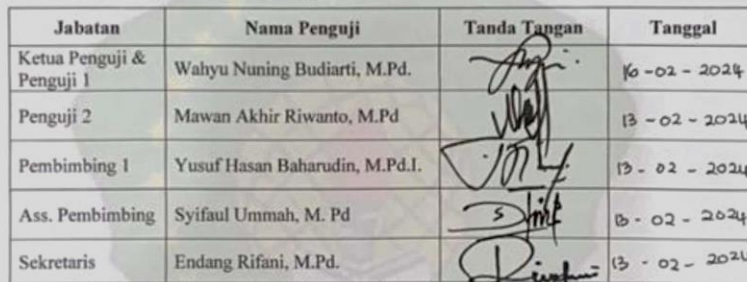 Jabatan Nama Penguji Tanda Tangan Tanggal
Ketua Penguji &
Penguji 1 Wahyu Nuning Budiarti, M.Pd. 16-02-2024
Penguji 2 Mawan Akhir Riwanto, M.Pd 13-02-2024
Pembimbing 1 Yusuf Hasan Baharudin, M.Pd.I. 13-02-2024
Ass. Pembimbing Syifaul Ummah, M. Pd 13-02-2024
Sekretaris Endang Rifani, M.Pd. 13-02-2024